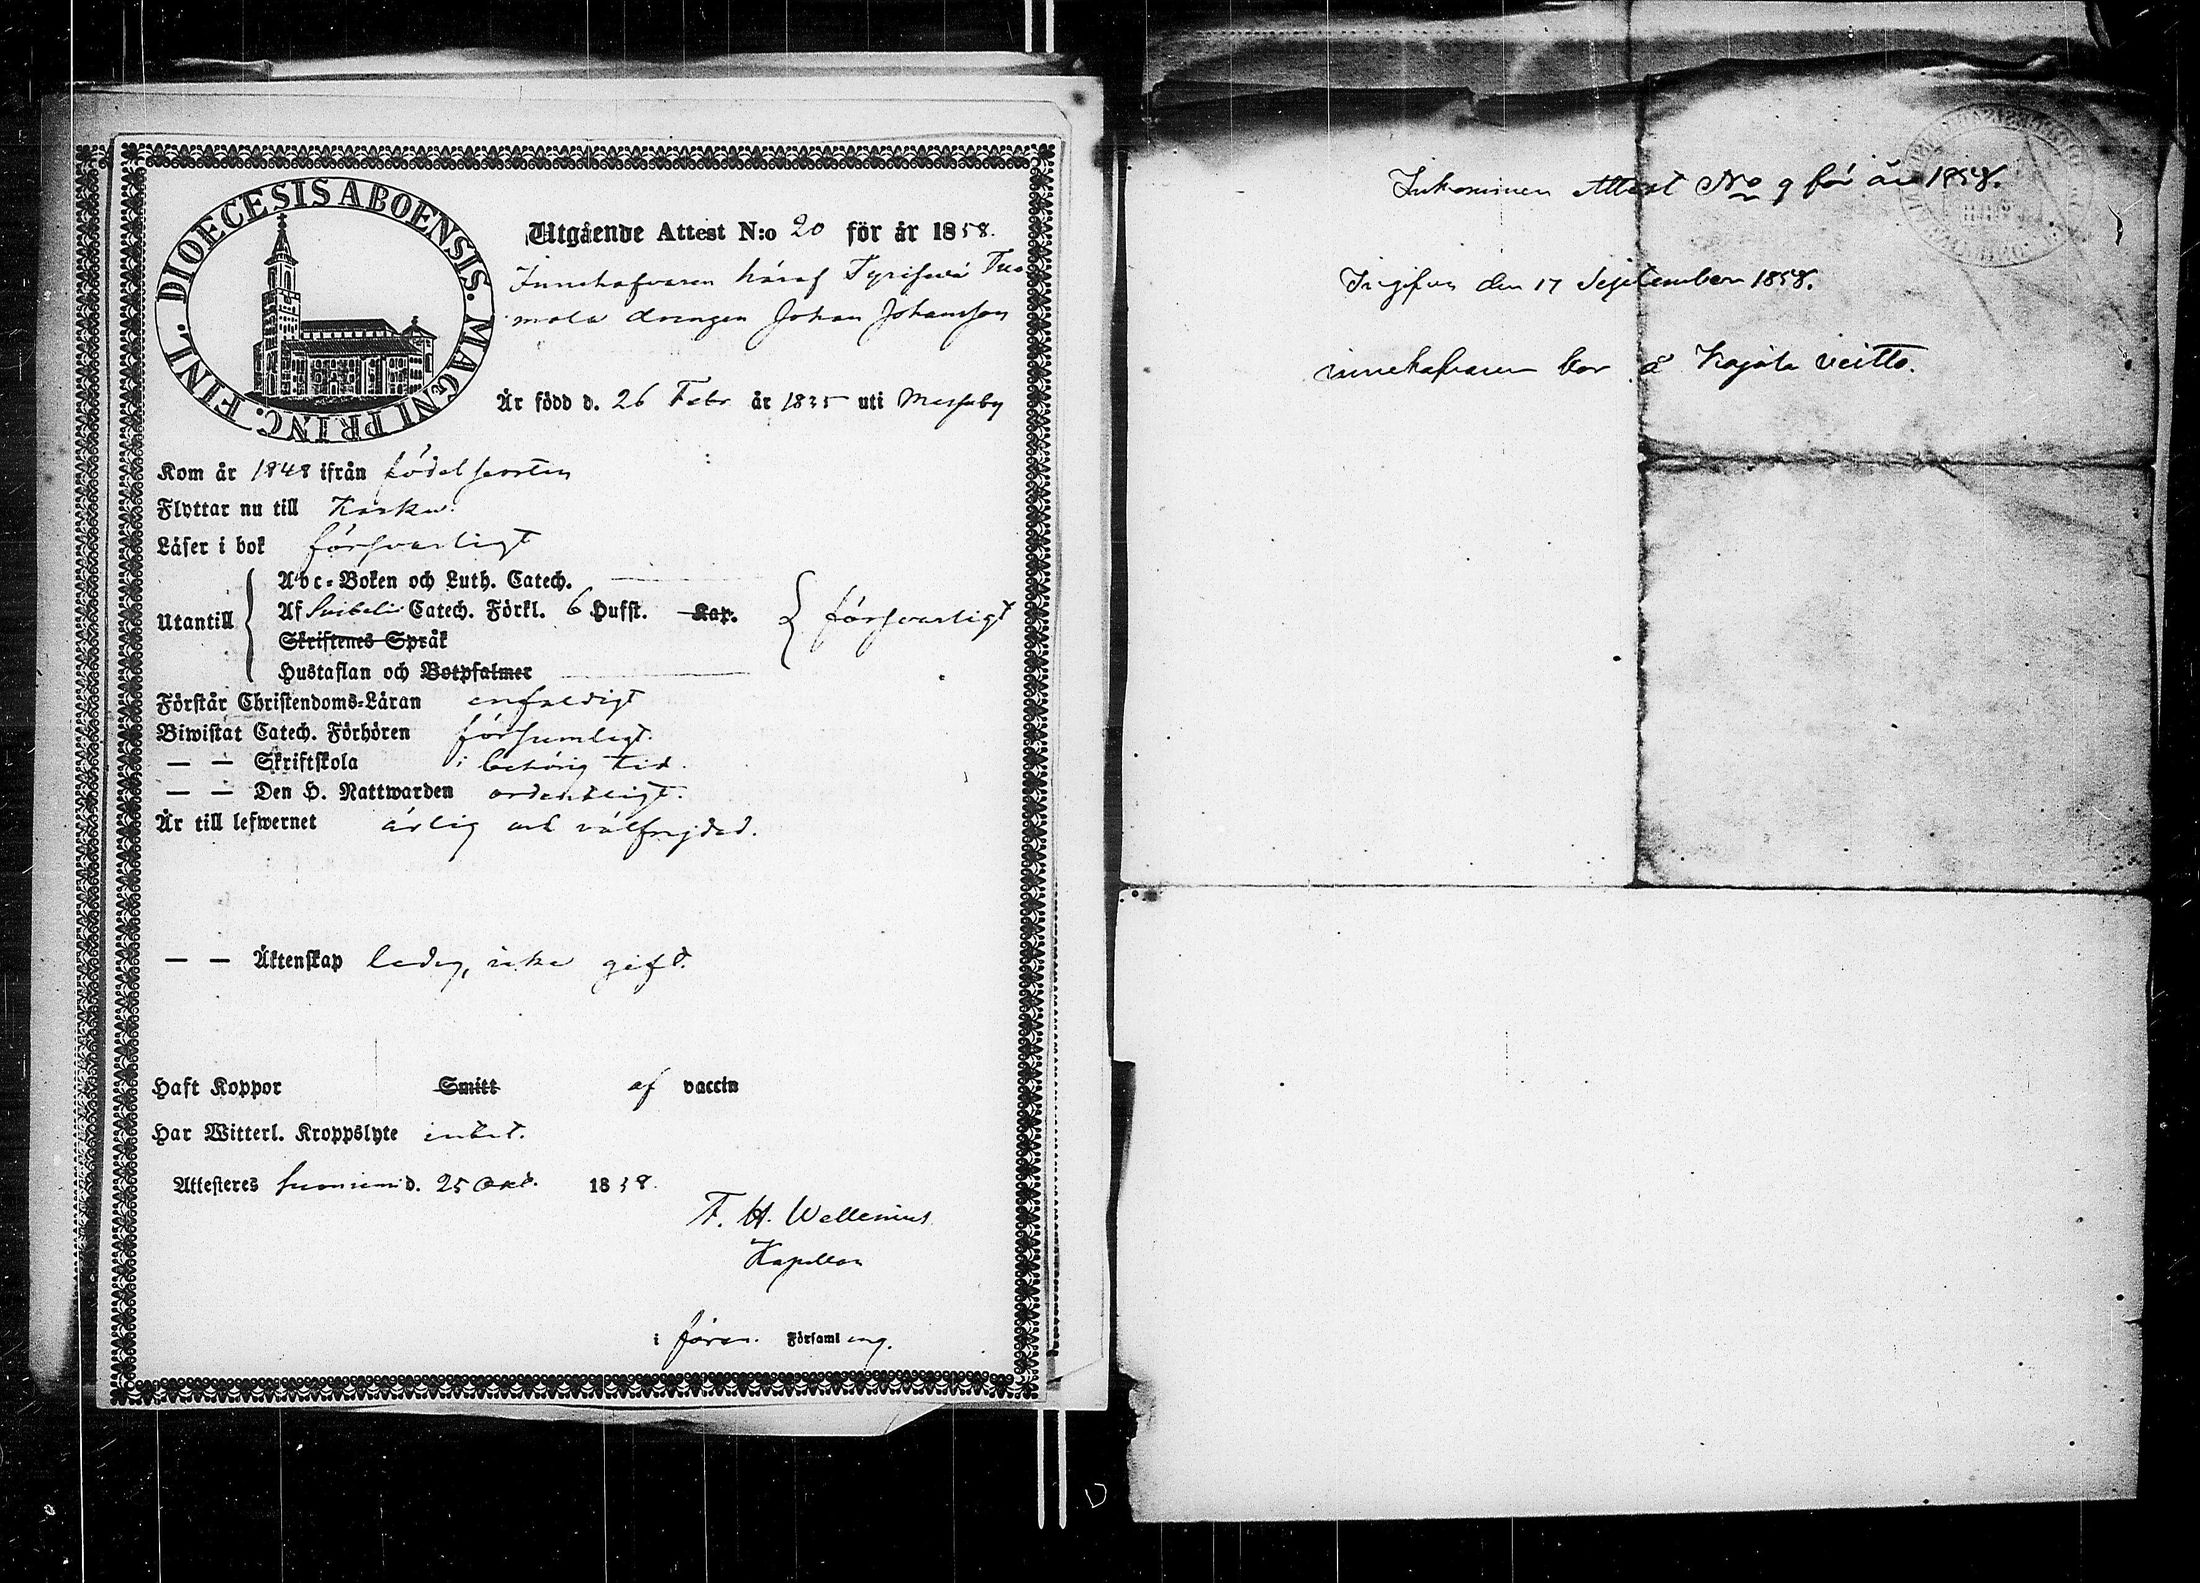 DIOECESIS ABOENSIS. MAGNI PRINC. FINL.
Utgående Attest N:o 20 för år 1858.
Innehafvaren häraf Tyrisevä Tuo
mola drengen Johan Johansson
Är född d. 26 Febr år 1835 uti Messuby
Kom år 1848 ifrån födelseorten
Flyttar nu till Karku.
Läser i bok försvarligt
Utantill
Abc-Boken och Luth. Catech.
Af Svibelii Catech. Förkl. 6 Hufst. Kap.
försvarligt
Skriftenes Språk
Hustaflan och Botpsalmer
Förstår Christendoms-Läran enfaldigt
Biwistat Catech. Förhören försumligt.
— — Skriftskola i behörig tid.
— — Den H. Nattwarden ordentligt.
Är till lefwernet ärlig och välfrejdad.
— — Äktenskap ledig, icke gift.
Haft Koppor Smitt af vaccin
Har Witterl. Kroppslyte intet.
Attesteres Suoniemi d. 25 Okt. 1858.
F. H. Wellenius
Kapellan
i fören. Församling.
Inkommen Attest No 9 för år 1858.
Ingifven den 17 September 1858.
innehafvaren bor å Kojola Veitto.